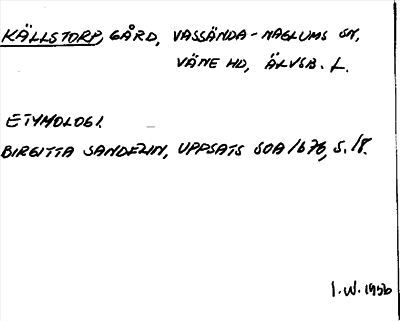 KÄLLSTORP, GÅRD, VASSÄNDA-NAGLUMS SN,
VÄNE HD, ÄLVSB. L.
ETYMOLOGI.
BIRGITTA SANDELIN, UPPSATS SOA 1676, S. 18.
I.W. 1956